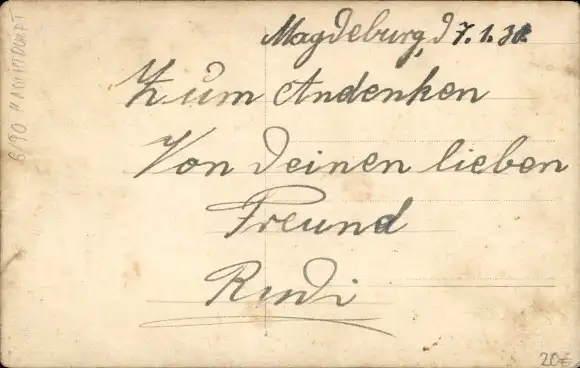 Magdeburg, d 7.1.30.
Zum Andenken
Von deinen lieben
Freund
Rudi
20€